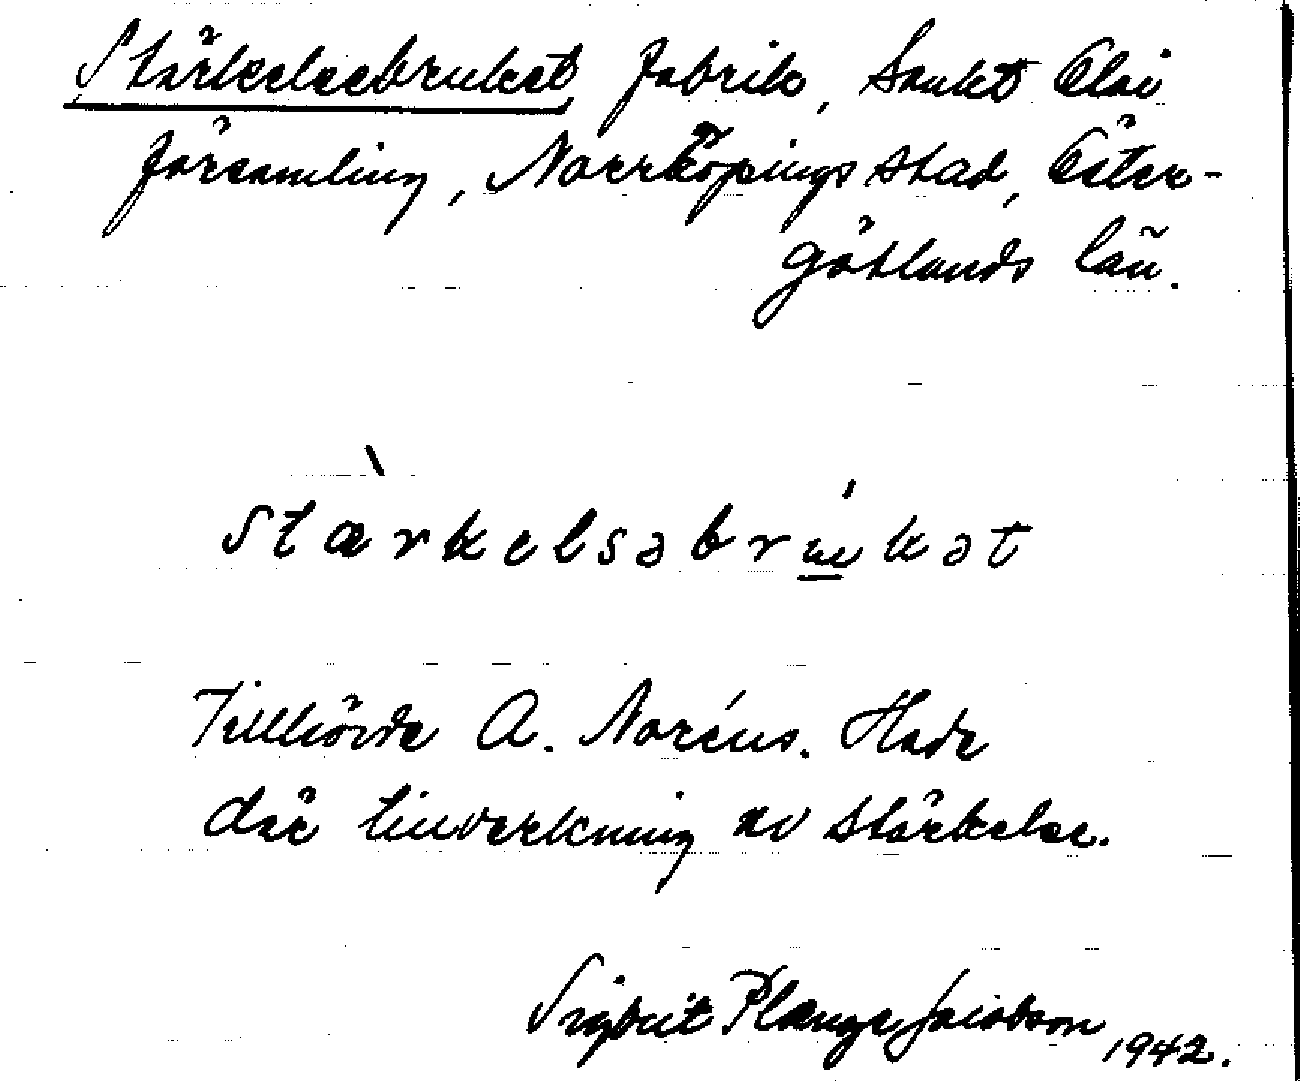 Stärkelsebruket, fabrik, Sankt Olai
församling, Norrköpings stad, Öster-
götlands län.
stærkelsəbrʉkət
Tillhörde A. Noréus. Hade
där tillverkning av stärkelse.
Sigbrit Plænge Jacobson 1942.